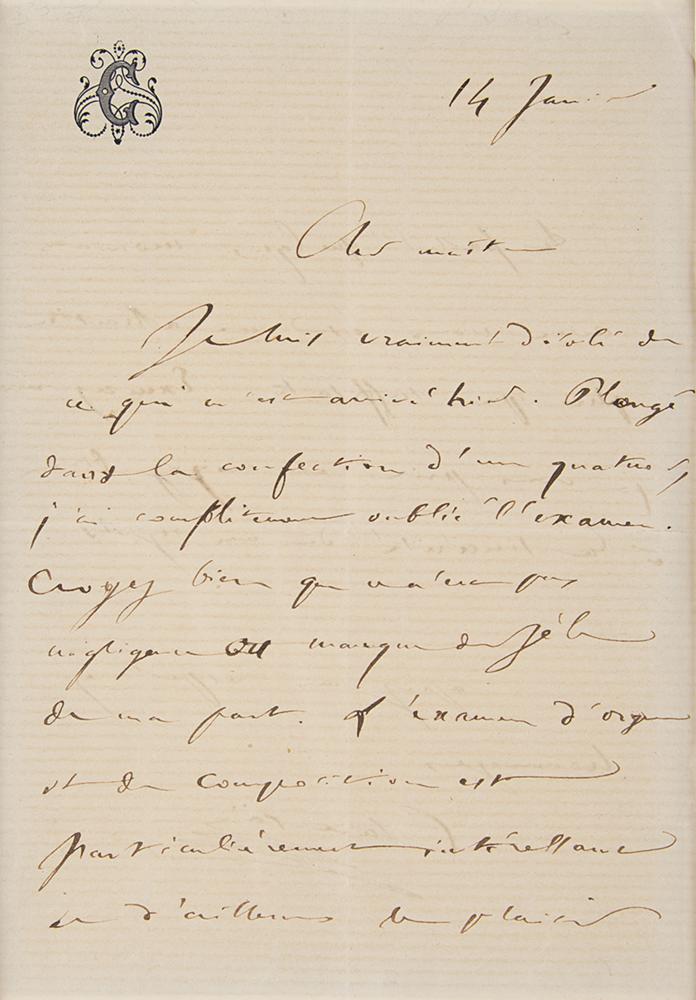 14 Janvier
Cher maître
Je suis vraiment désolé de
ce qui m'est arrivé hier. Plongé
dans la confection d'un quatuor,
j'ai complètement oublié l'examen.
Croyez bien que ce n'est pas
négligence ou manque de zèle
de ma part. L'examen d'orgue
et de composition est
particulièrement intéressant
et d'ailleurs le plaisir